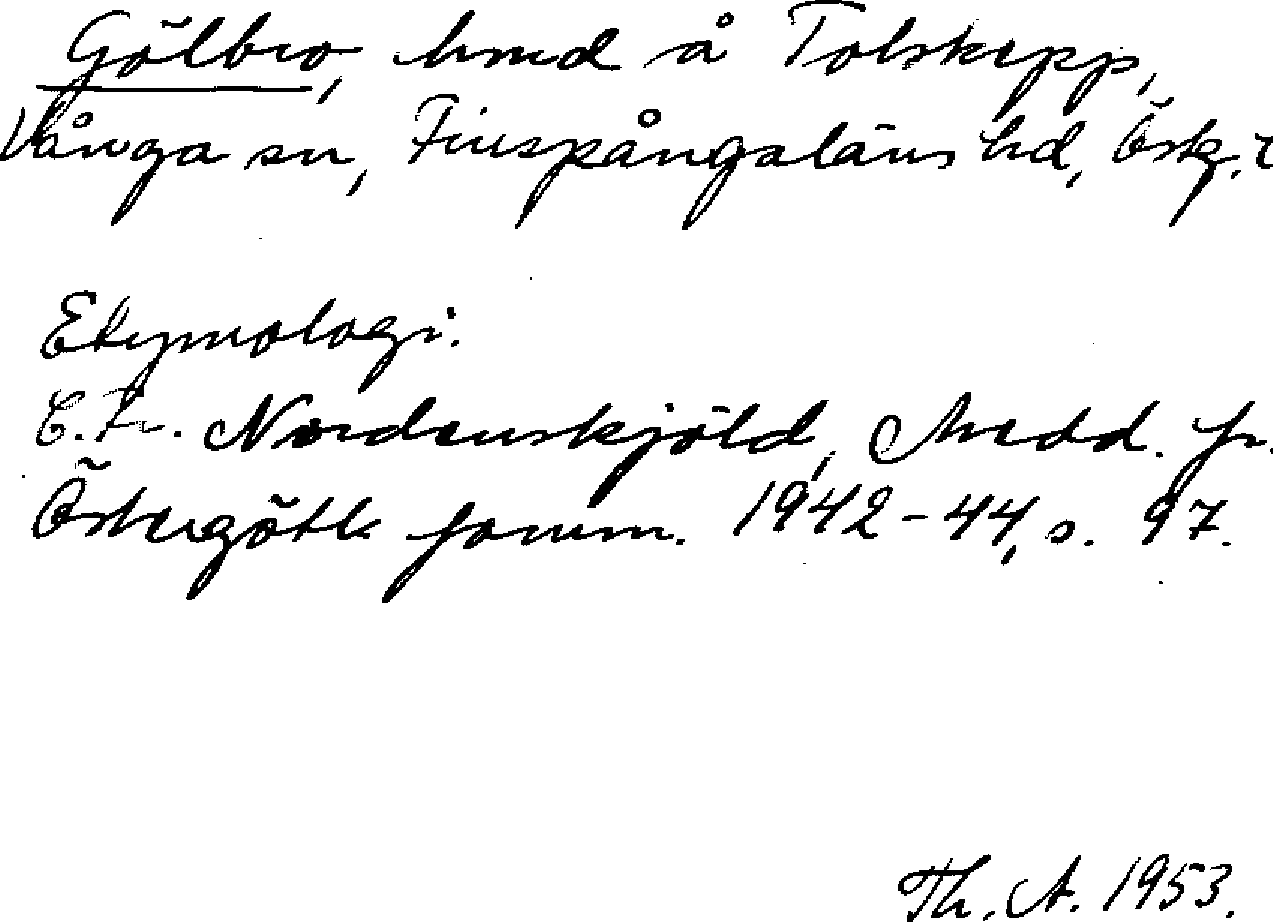 Gölbro, hmd å Tolskepp,
Vånga sn, Finspångaläns hd, Östg. l
Etymologi.
C. Fr. Nordenskjöld, Medd. fr.
Östergötl. fornm. 1942-44, s. 97.
Th. A. 1953.